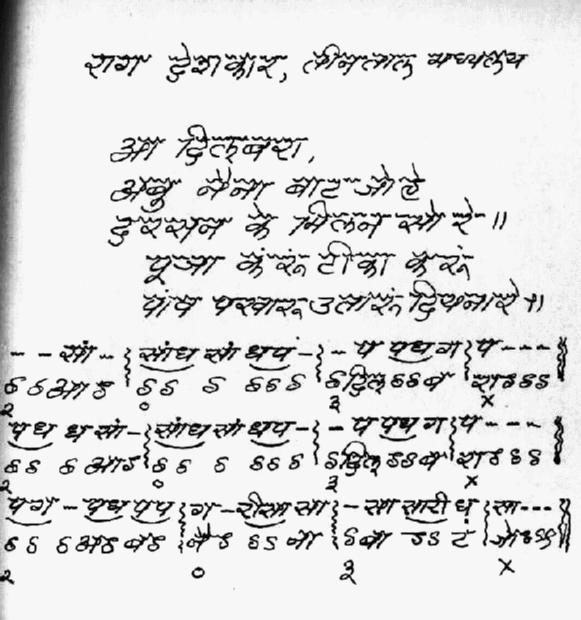 राग देशकार, तीनताल मध्यलय
आ दिलबरा,
अबु नैना बाट जो हे
दुरसन के मिलन सो रे ॥
पूजा करूं टीका करूं
पांव पखारू उतारूं दियनारे ॥
- - सां - सांध सां धप - - प पध ग प - - -
ऽ ऽ आ ऽ ऽ ऽ ऽ ऽ ऽ ऽ ऽ दिल् ऽ ऽ ब रा ऽ ऽ ऽ
२ ० ३ ×
पध ध सां - सांध सां धप - - प पध ग प - - -
ऽ ऽ ऽ आ ऽ ऽ ऽ ऽ ऽ ऽ ऽ ऽ दिल् ऽ ऽ ब रा ऽ ऽ ऽ
२ ० ३ ×
पग - पध पप ग - रीसा सा - सा सारी ध सा - - -
ऽ ऽ ऽ अऽ बऽ नै ऽ ऽ ऽ ना ऽ बा ऽ ऽ टं जो ऽ ऽ
२ ० ३ ×